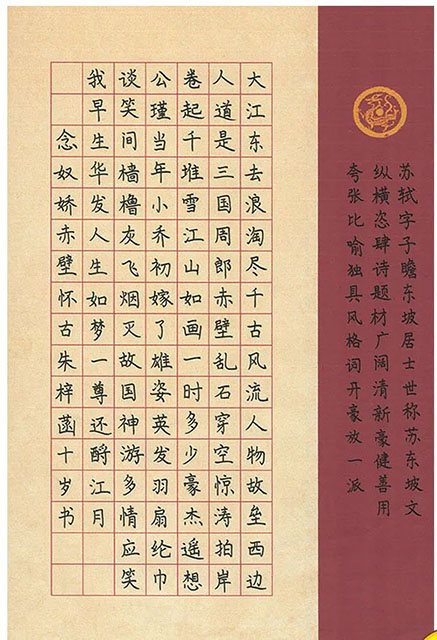 苏轼字子瞻东坡居士世称苏东坡文
纵横恣肆诗题材广阔清新豪健善用
夸张比喻独具风格词开豪放一派
大江东去浪淘尽千古风流人物故垒西边
人道是三国周郎赤壁乱石穿空惊涛拍岸
卷起千堆雪江山如画一时多少豪杰遥想
公瑾当年小乔初嫁了雄姿英发羽扇纶巾
谈笑间樯橹灰飞烟灭故国神游多情应笑
我早生华发人生如梦一尊还酹江月
念奴娇赤壁怀古朱梓菡十岁书